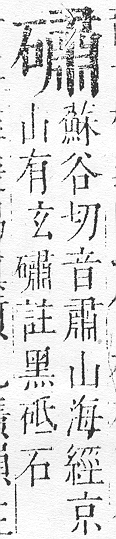 礵
蘇谷切音肅山海經京
山有玄礵註黑砥石